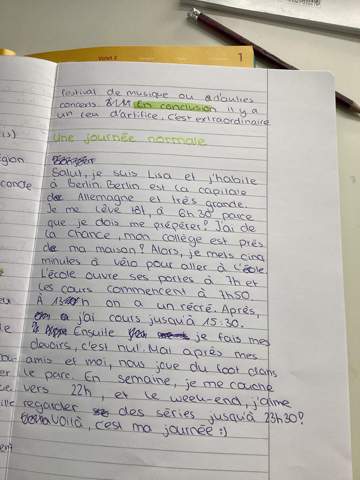 1
festival de musique ou d'autres
concerts En conclusion il y a
un feu d'artifice, c'est extraordinaire
une journée normale
Salut, je suis Lisa et j'habite
à Berlin. Berlin est la capitale
de Allemagne et très grande.
Je me lève tôt, à 6h30 parce
que je dois me préparer? J'ai de
la chance, mon collège est près
de ma maison? Alors, je mets cinq
minutes à vélo pour aller à l'école
L'école ouvre ses portes à 7h et
les cours commencent à 7h50.
À 13h on a un récré. Après,
j'ai cours jusqu'à 15:30.
Ensuite je fais mes
devoirs, c'est nul. Mai après mes
amis et moi, nous joue du foot dans
le parc. En semaine, je me couche
vers 22h, et le week-end, j'aime
regarder des séries jusqu'à 23h30?
Voilà, c'est ma journée :)